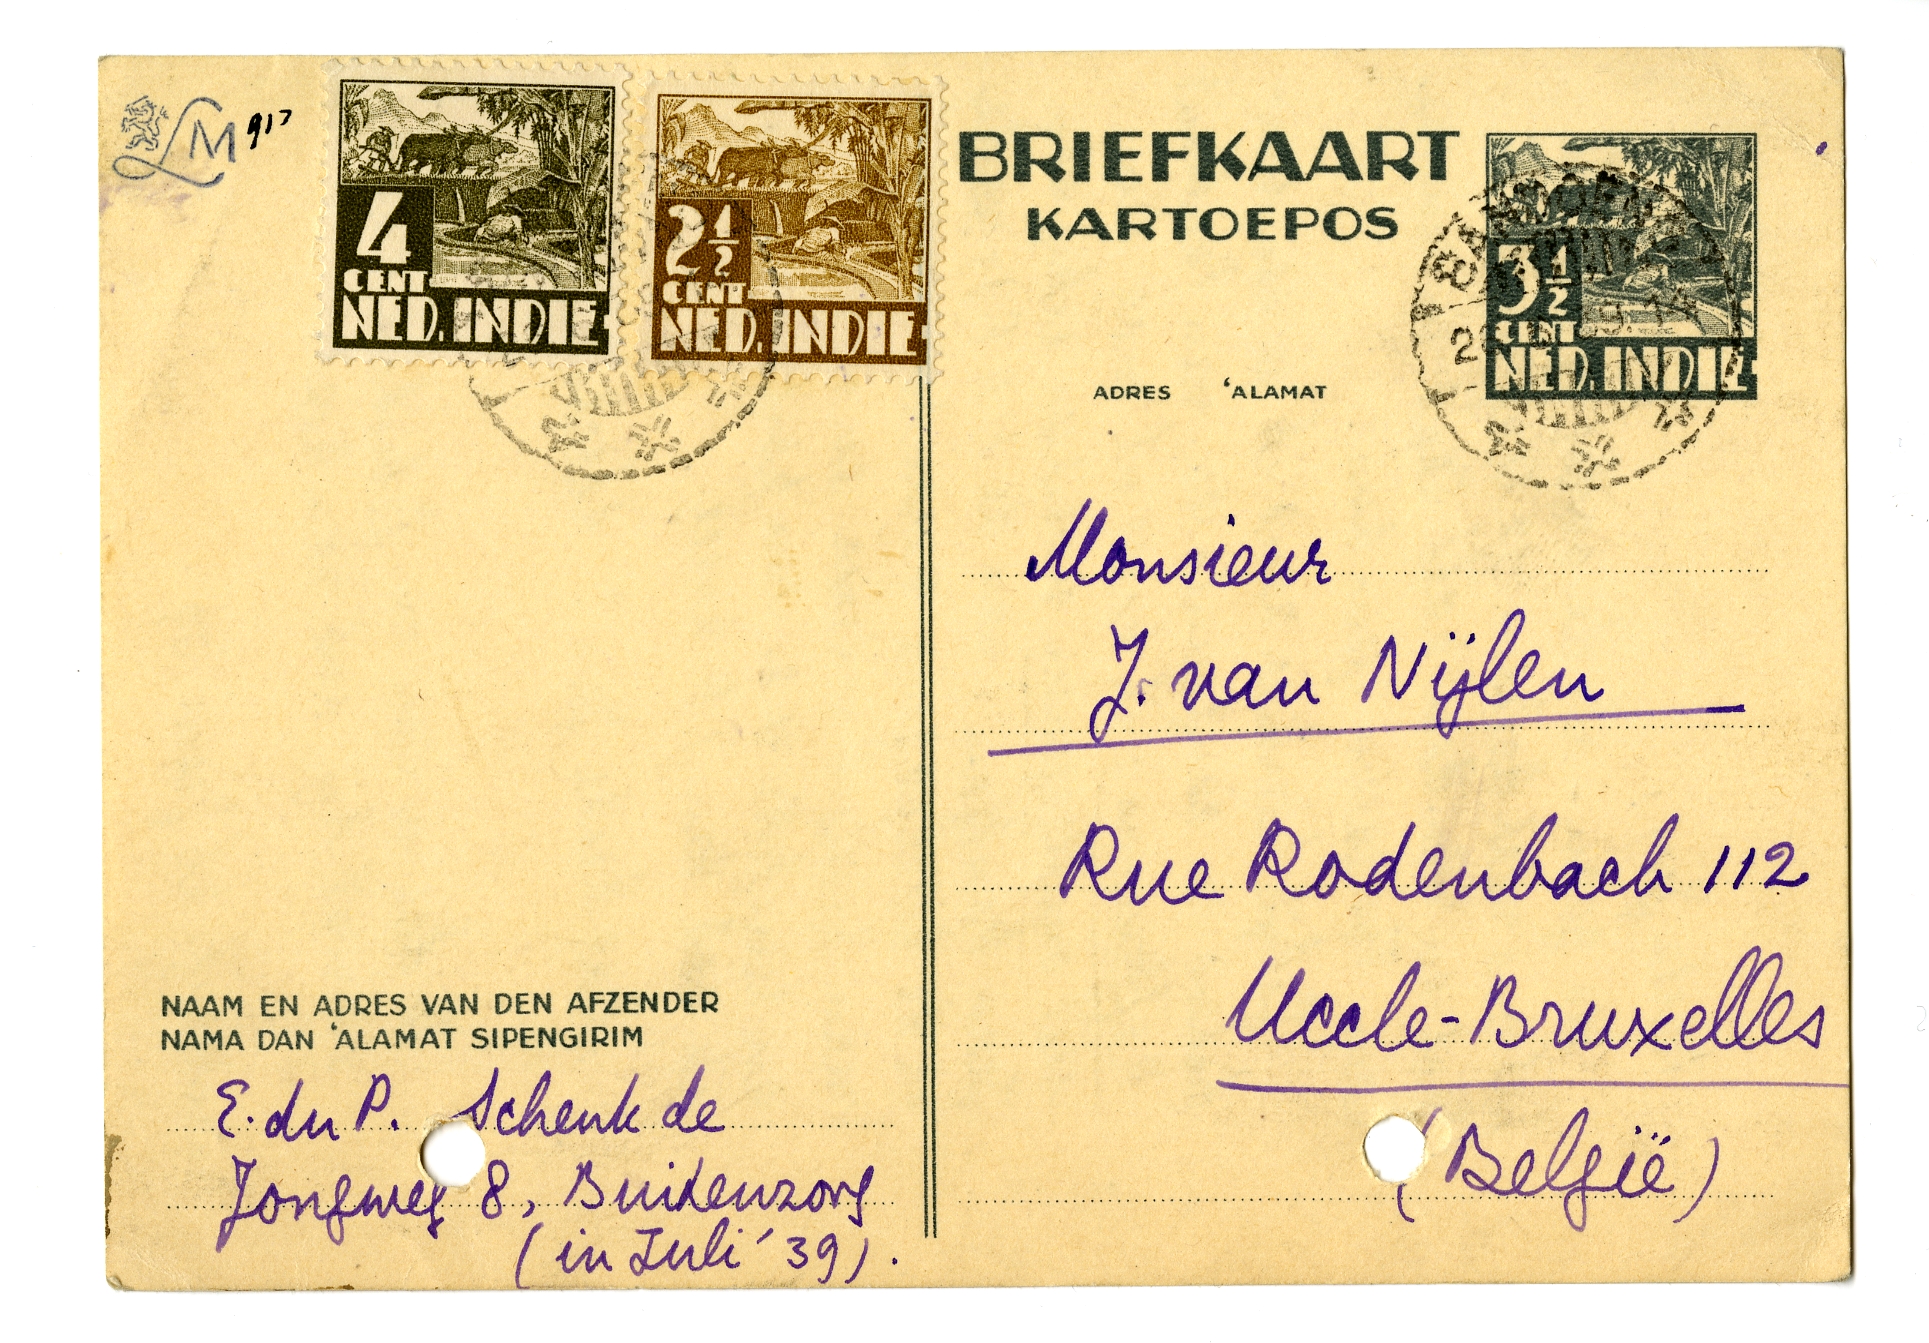 LM 917
4
CENT
NED. INDIE
2½
CENT
NED. INDIE
BRIEFKAART
KARTOEPOS
3½
CENT
NED. INDIE
ADRES 'ALAMAT
Monsieur
J. van Nijlen
Rue Rodenbach 112
Uccle-Bruxelles
(België)
NAAM EN ADRES VAN DEN AFZENDER
NAMA DAN 'ALAMAT SIPENGIRIM
E. du P. Schenk de
Jongweg 8, Buitenzorg
(in Juli '39).